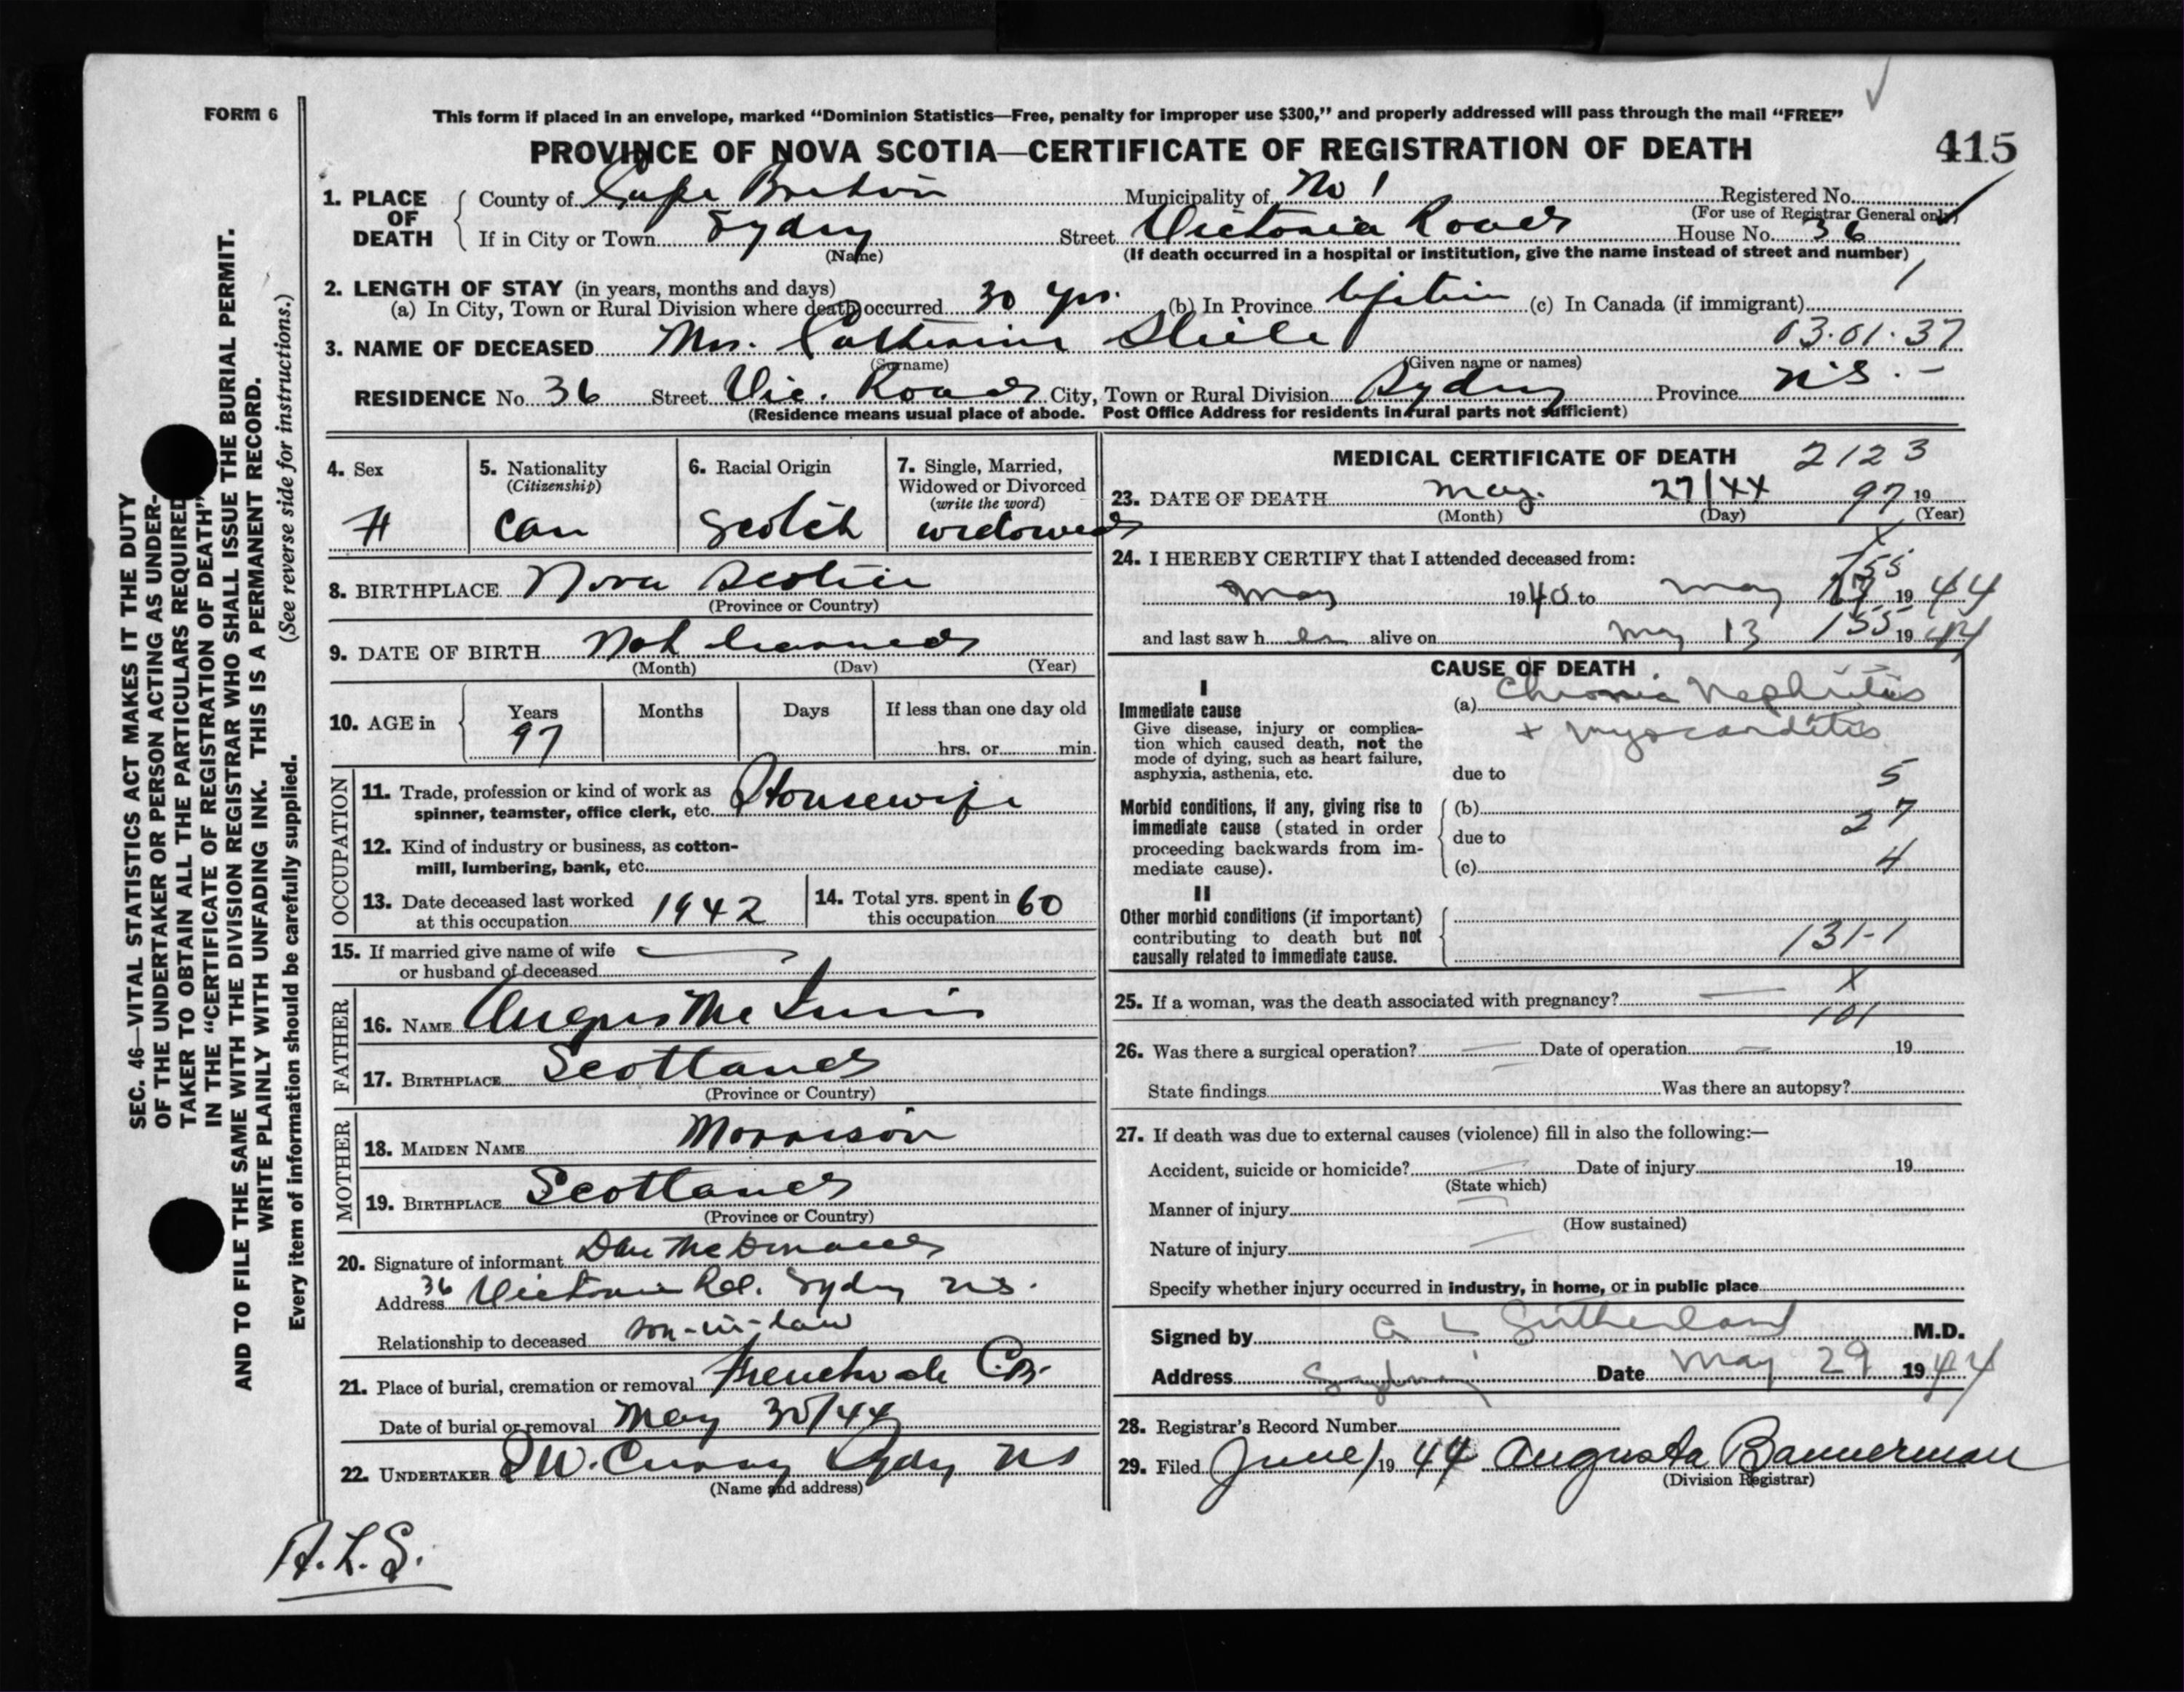 FORM 6
This form if placed in an envelope, marked "Dominion Statistics—Free, penalty for improper use $300," and properly addressed will pass through the mail "FREE"
PROVINCE OF NOVA SCOTIA—CERTIFICATE OF REGISTRATION OF DEATH 415
1. PLACE OF DEATH County of Cape Breton Municipality of No 1 Registered No.
(For use of Registrar General only)
If in City or Town Sydney Street Victoria Road House No. 36
(Name) (If death occurred in a hospital or institution, give the name instead of street and number)
2. LENGTH OF STAY (in years, months and days) 1
(a) In City, Town or Rural Division where death occurred 30 yrs. (b) In Province Lifetime (c) In Canada (if immigrant)
3. NAME OF DECEASED Mrs. Catherine 03.01.37
(Surname) (Given name or names)
RESIDENCE No. 36 Street Vic. Road City, Town or Rural Division Sydney Province N.S. -
(Residence means usual place of abode. Post Office Address for residents in rural parts not sufficient)
4. Sex 5. Nationality (Citizenship) 6. Racial Origin 7. Single, Married, Widowed or Divorced (write the word)
Can Scotch widowed
8. BIRTHPLACE Nova Scotia
(Province or Country)
9. DATE OF BIRTH Not learned
(Month) (Day) (Year)
10. AGE in Years Months Days If less than one day old
97 hrs. or min.
OCCUPATION
11. Trade, profession or kind of work as spinner, teamster, office clerk, etc. Housewife
12. Kind of industry or business, as cotton-mill, lumbering, bank, etc.
13. Date deceased last worked at this occupation 1942 14. Total yrs. spent in this occupation 60
15. If married give name of wife or husband of deceased
FATHER
16. NAME Angus Mc
17. BIRTHPLACE Scotland
(Province or Country)
MOTHER
18. MAIDEN NAME Morrison
19. BIRTHPLACE Scotland
(Province or Country)
20. Signature of informant Dan McDonald
Address 36 Victoria Rd. Sydney N.S.
Relationship to deceased son-in-law
21. Place of burial, cremation or removal Frenchvale C.B.
Date of burial or removal May 30/44
22. UNDERTAKER W. Curry Sydney NS
(Name and address)
A.L.S.
MEDICAL CERTIFICATE OF DEATH 2123
23. DATE OF DEATH May 27/44 97 19
(Month) (Day) (Year)
24. I HEREBY CERTIFY that I attended deceased from: X
155
May 1940 to May 19 44
and last saw her alive on May 13 155 19 44
CAUSE OF DEATH
I
Immediate cause (a) Chronic Nephritis
+ myocarditis
Give disease, injury or complication which caused death, not the mode of dying, such as heart failure, asphyxia, asthenia, etc.
due to 5
Morbid conditions, if any, giving rise to immediate cause (stated in order proceeding backwards from immediate cause).
(b) 27
due to
(c) 4
II
Other morbid conditions (if important) contributing to death but not causally related to immediate cause.
131-1
25. If a woman, was the death associated with pregnancy? — X
101
26. Was there a surgical operation? — Date of operation — 19
State findings Was there an autopsy?
27. If death was due to external causes (violence) fill in also the following:—
Accident, suicide or homicide? — Date of injury 19
(State which)
Manner of injury —
(How sustained)
Nature of injury —
Specify whether injury occurred in industry, in home, or in public place
Signed by Sutherland M.D.
Address Sydney Date May 29 1944
28. Registrar's Record Number
29. Filed June 1 19 44 Augusta Bannerman
(Division Registrar)
SEC. 46—VITAL STATISTICS ACT MAKES IT THE DUTY
OF THE UNDERTAKER OR PERSON ACTING AS UNDER-
TAKER TO OBTAIN ALL THE PARTICULARS REQUIRED
IN THE "CERTIFICATE OF REGISTRATION OF DEATH"
AND TO FILE THE SAME WITH THE DIVISION REGISTRAR WHO SHALL ISSUE THE BURIAL PERMIT.
WRITE PLAINLY WITH UNFADING INK. THIS IS A PERMANENT RECORD.
Every item of information should be carefully supplied. (See reverse side for instructions.)